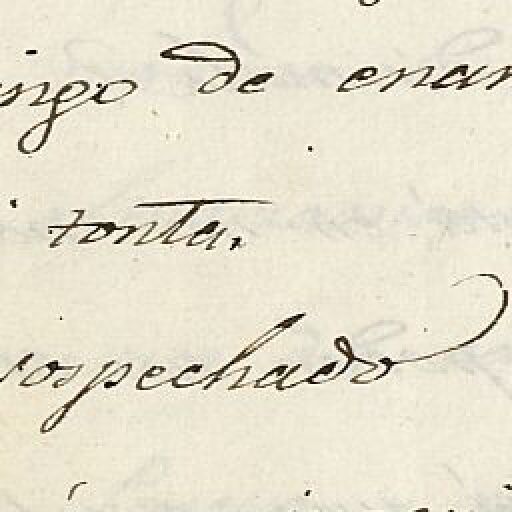 ingo de enam
tonta.
sospechado